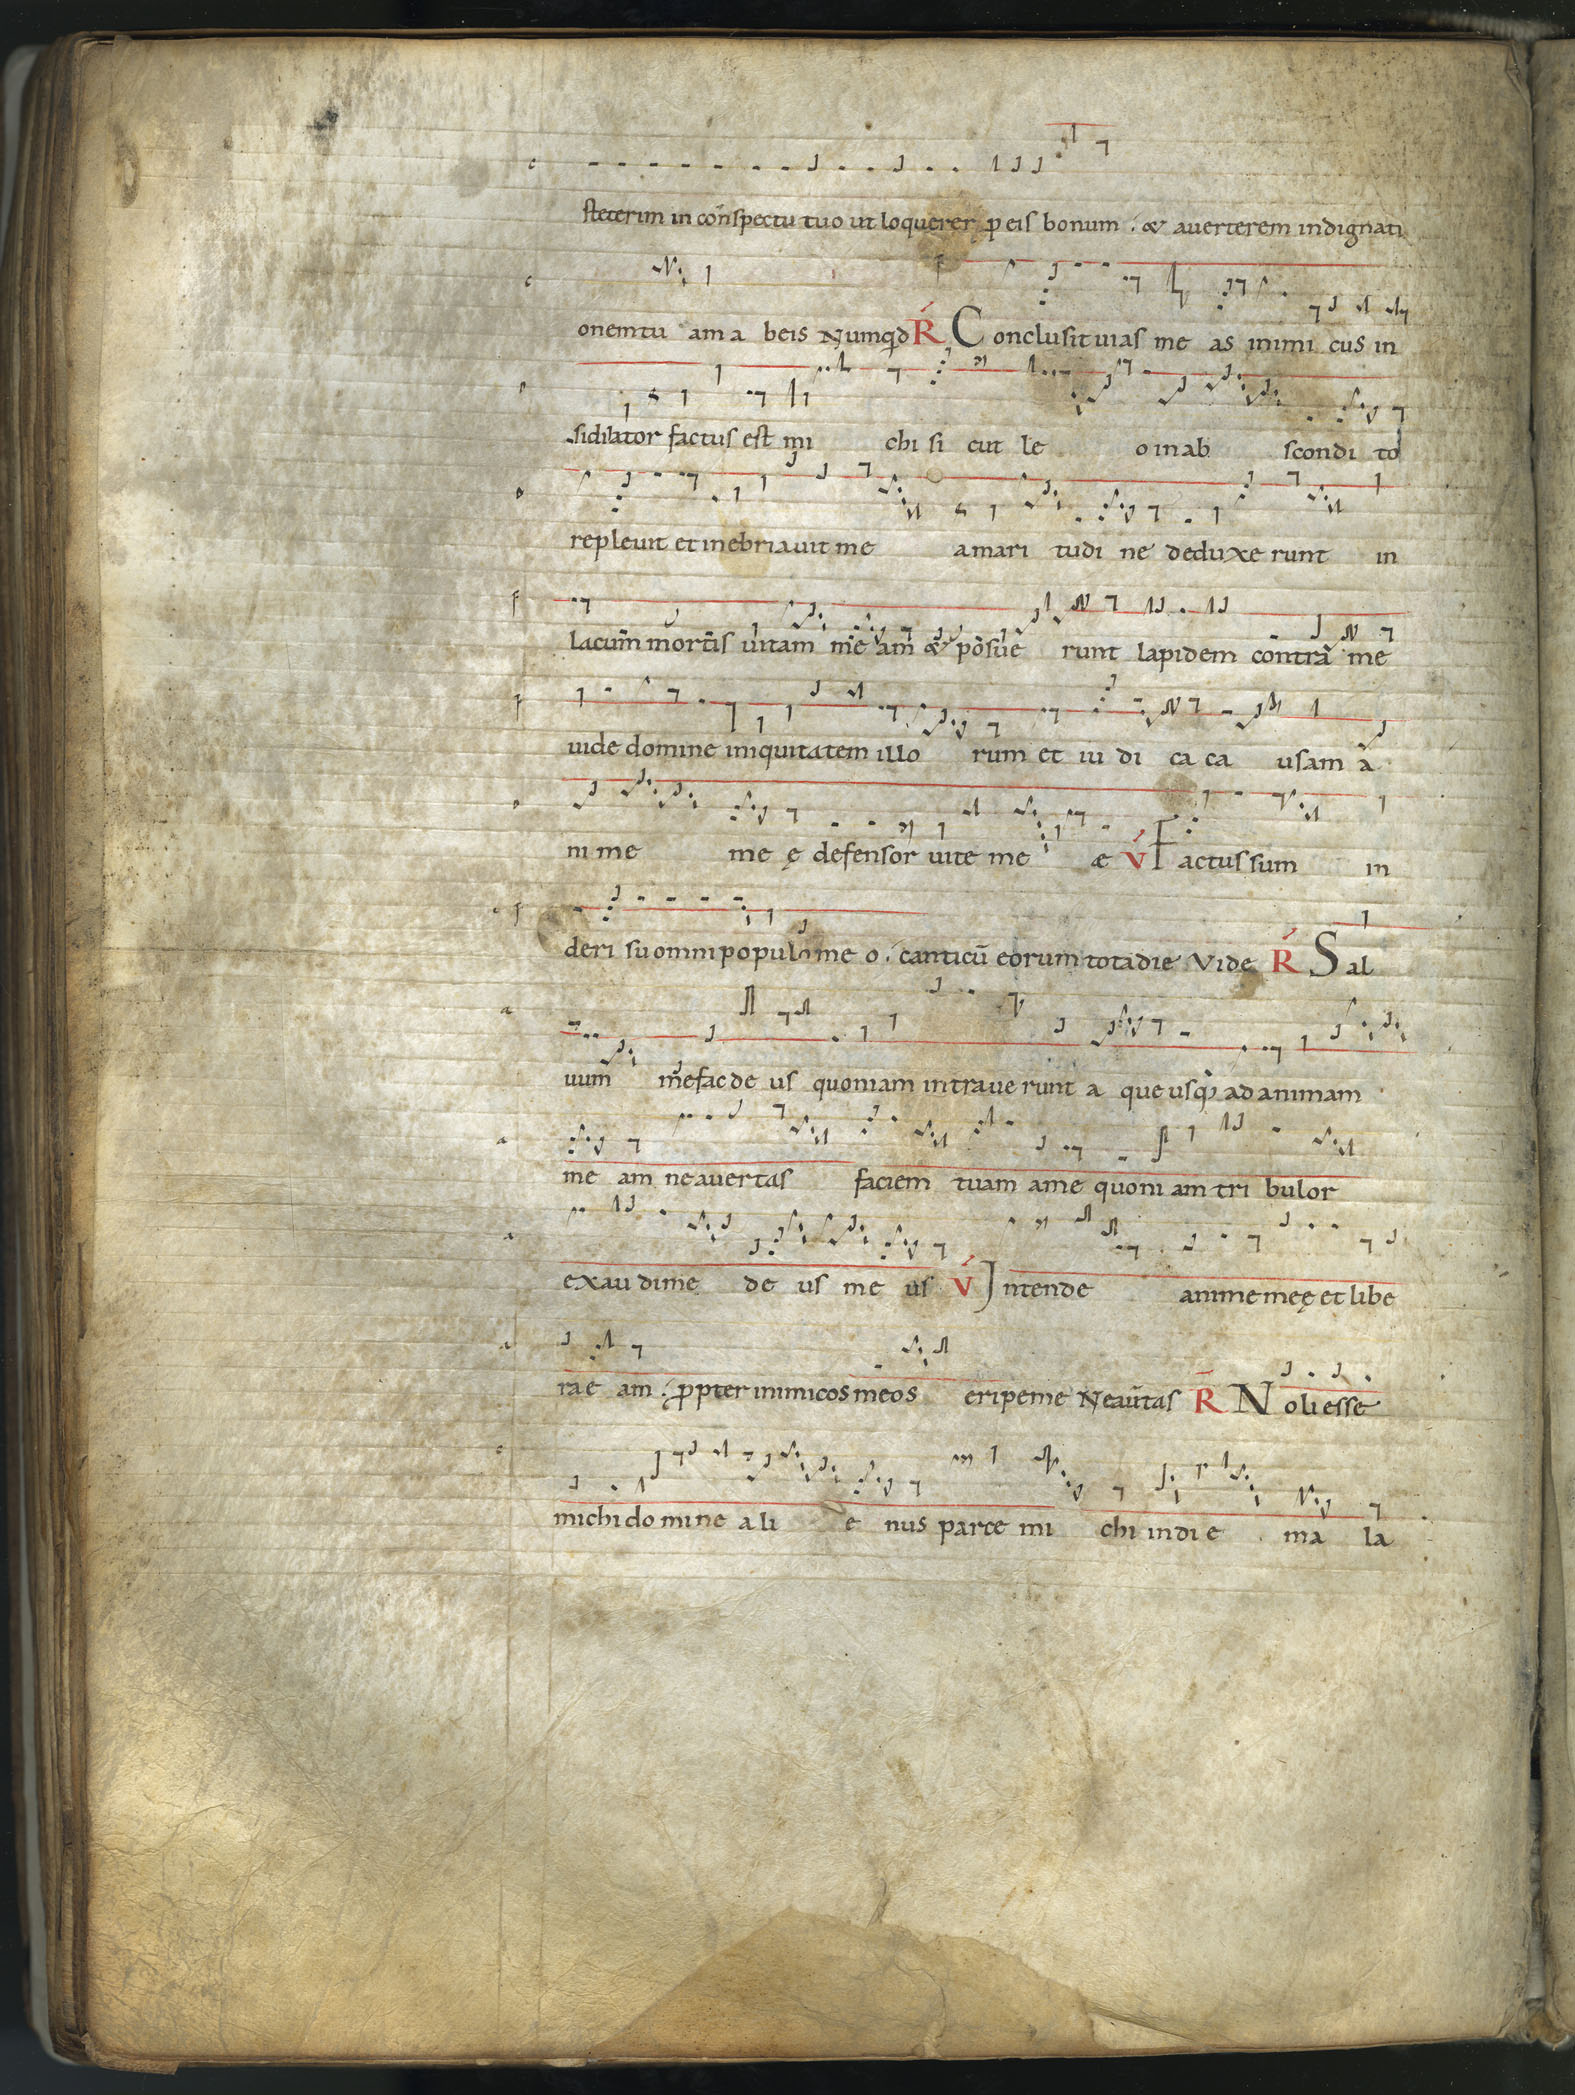 steterim in conspectu tuo ut loquerer p eis bonum . & averterem indignati
onem tu am a beis Numqd R Conclusit uias me as inimi cus in
sidiator factus est mi chi si cut le o in ab scondi to
repleuit et inebriauit me amari tudi ne deduxe runt in
lacum mortis uitam me am & posue runt lapidem contra me
uide domine iniquitatem illo rum et iu di ca ca usam a
ni me me ę defensor uite me æ V Factus sum in
deri su omni populo me o . canticū eorum tota die Vide R Sal
uum me fac de us quoniam intraue runt a que usq; ad animam
me am ne avertas faciem tuam a me quoni am tri bulor
exau di me de us me us V Intende anime meę et libe
ra e am . ppter inimicos meos eripe me Ne aūtas R Noli esse
michi do mi ne a li e nus parce mi chi in di e ma la